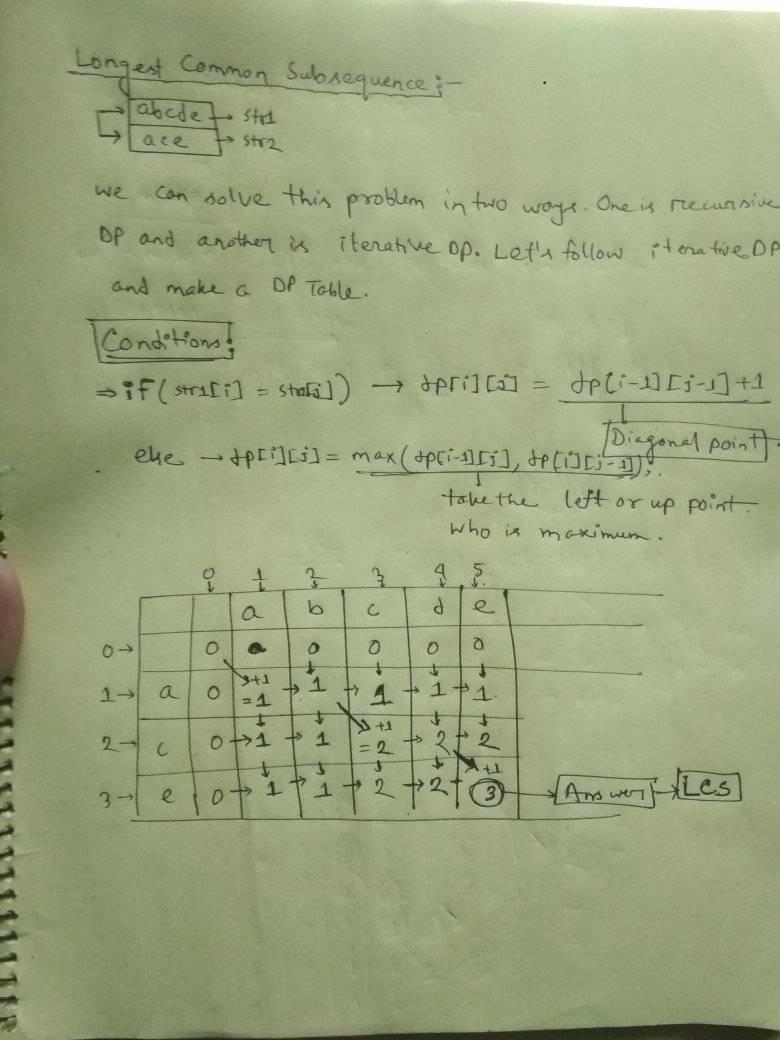 Longest Common Subsequence :-
abcde → str1
ace → str2
we can solve this problem in two ways. One is recursive
DP and another is iterative DP. Let's follow iterative DP
and make a DP Table.
Conditions:
⇒ if (str1[i] = str2[j]) → dp[i][j] = dp[i-1][j-1]+1
Diagonal point.
else → dp[i][j] = max(dp[i-1][j], dp[i][j-1]);
take the left or up point.
who is maximum.
0 1 2 3 4 5
a b c d e
0→ 0 0 0 0 0 0
1→ a 0 +1 =1 → 1 → 1 → 1 → 1
2→ c 0 → 1 → 1 +1 =2 → 2 → 2
3→ e 0 → 1 → 1 → 2 → 2 +1 3 → Answer → LCS